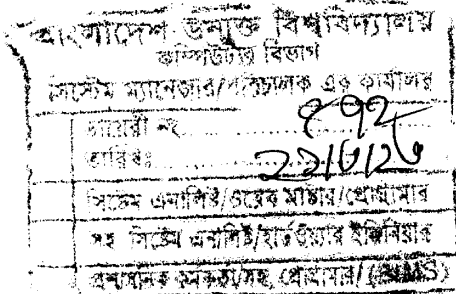 বাংলাদেশ উন্মুক্ত বিশ্ববিদ্যালয়
কম্পিউটার বিভাগ
সিস্টেম ম্যানেজার/পরিচালক এর কার্যালয়
ডায়েরী নং.............
তারিখঃ..............
সিস্টেম এনালিষ্ট/ওয়েব মাষ্টার/প্রোগ্রামার
সহ সিস্টেম এনালিষ্ট/হার্ডওয়্যার ইঞ্জিনিয়ার
প্রশাসনিক কর্মকর্তা/সহ. প্রোগ্রামার/